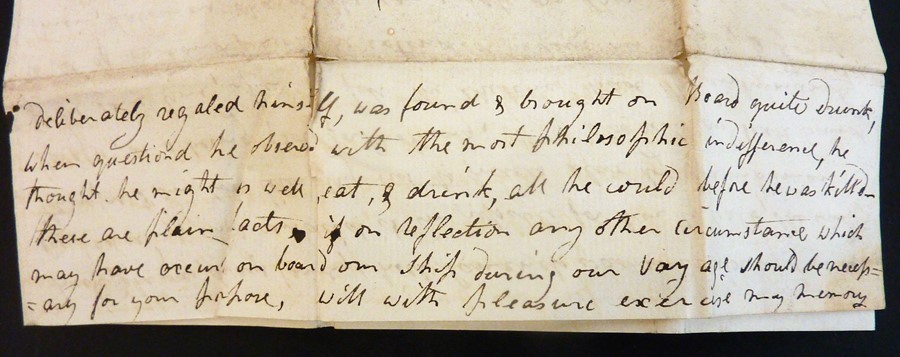 deliberately regaled himself, was found & brought on Board quite drunk,
when questiond he observd with the most philosophic indifference, he
thought he might as well eat, & drink, all he could before he was killd—
these are plain facts, if on reflection any other circumstance which
may have occurd on board our ship during our Voyage should be necess=
=ary for your purpose, will with pleasure exercise my memory